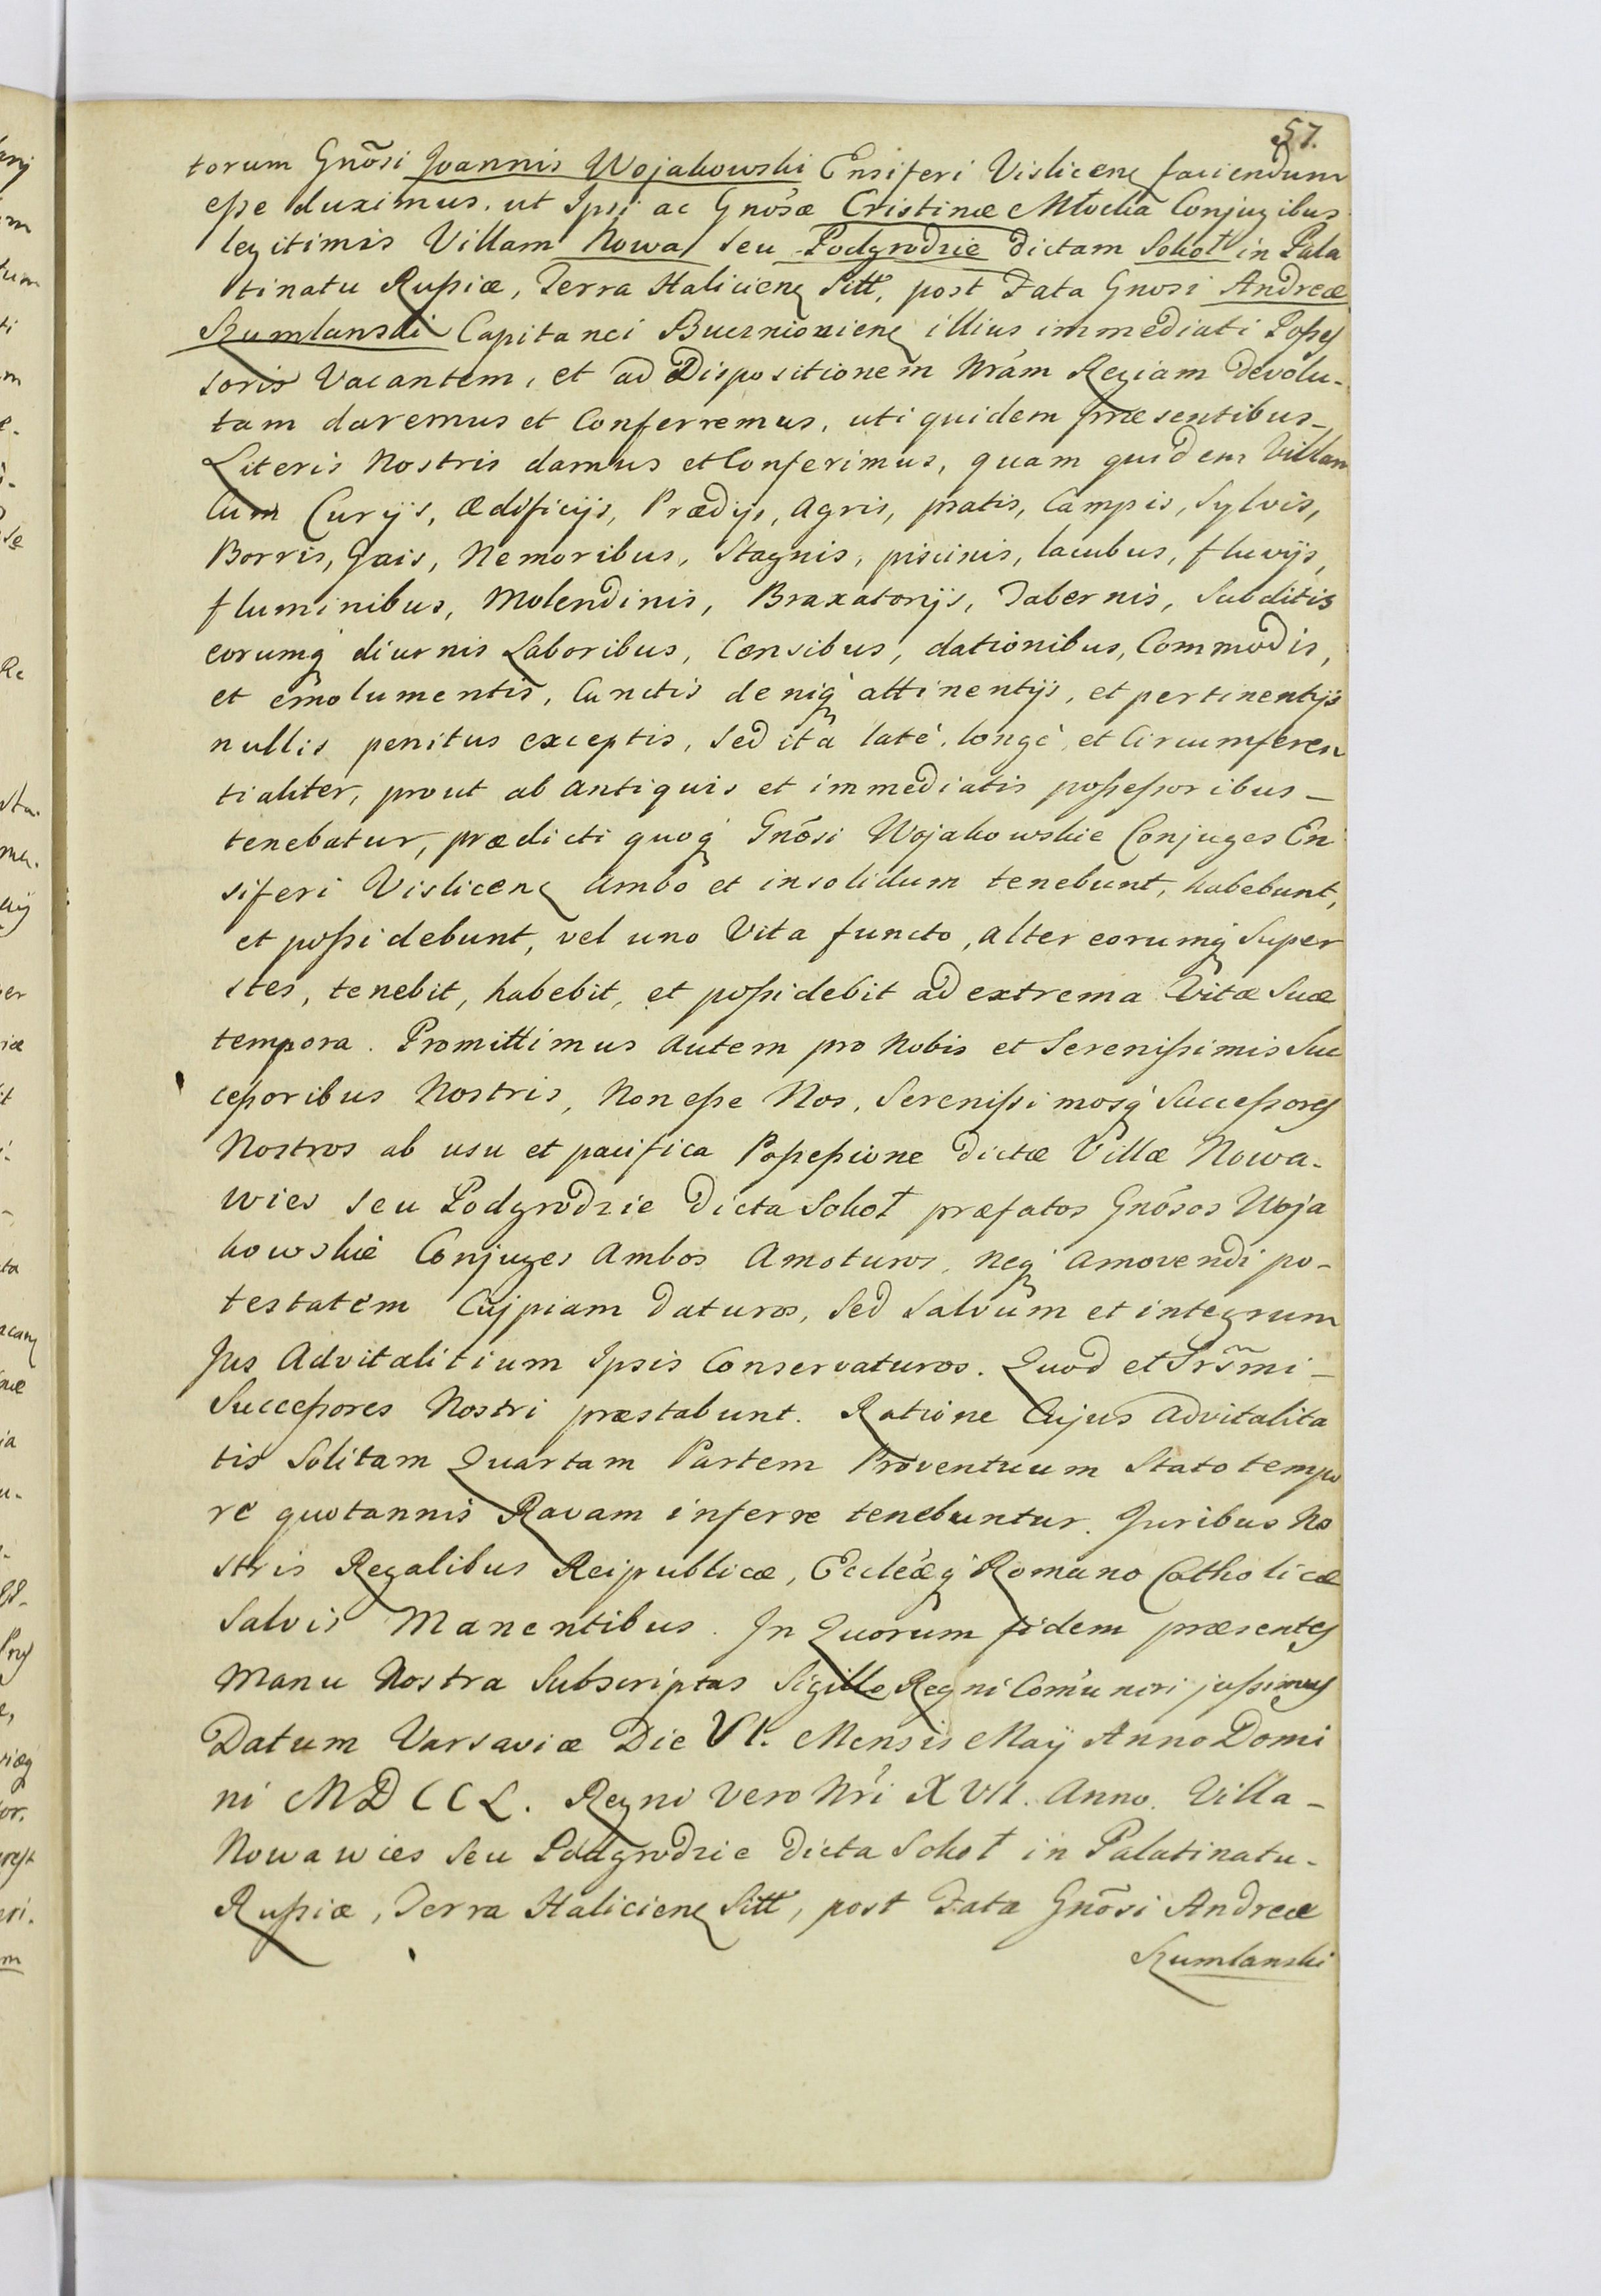 57.
torum Gnõsi Joannis Wojakowski Ensiferi Vislicens faciendum
esse duximus, ut Ipsi ac Gnósæ Cristinæ Młocka Conjugibus
legitimis Villam Nowa seu Podgrodzie dictam Sokoł in Pala
tinatu Russiæ, Terra Haliciens Sitt, post Fata Gnosi Andreæ
Rumlanski Capitanei Bucznioniens illius immediati Posses
soris Vacantem, et ad Dispositionem Nrám Regiam devolu-
tam daremus et Conferremus, uti quidem præsentibus-
Literis Nostris damus et Conferimus, quam quidem Villam
Cum Curÿs, ædificÿs, Prædÿs, Agris, pratis, Campis, Sylvis,
Borris, Gais, Nemoribus, Stagnis, piscinis, lacubus, fluvÿs,
fluminibus, Molendinis, Braxatorÿs, Tabernis, Subditis
eorumq́ diurnis Laboribus, Censibus, dationibus, Commodis,
et emolumentis, Cunctis deniq́ attinentÿs, et pertinentÿs
nullis penitus exceptis, Sed ita laté, longé, et Circumferen
tialiter, prout ab antiquis et immediatis possessoribus-
tenebatur, prædicti quoq́ Gnõsi Wojakowskie Conjuges En
siferi Vislicens Ambo et insolidum tenebunt, habebunt,
et possidebunt, vel uno Vita functo, alter eorumq́ Super
stes, tenebit, habebit, et possidebit ad extrema Vitæ Suæ
tempora. Promittimus autem pro Nobis et Serenissimis Suc
cessoribus Nostris, Non esse Nos, Serenissimosq́ Successores
Nostros ab usu et pacifica Possessione dictæ Villæ Nowa-
wies seu Podgrodzie dicta Sokoł præfatos Gnósos Woja
kowskie Conjuges Ambos Amoturos, neq́ amovendi po-
testatem Cujpiam daturos, Sed Salvum et integrum
Jus Advitalitium Ipsis Conservaturos. Quod et Srs̃mi-
Successores Nostri præstabunt. Ratione Cujus advitalita
tis Solitam Quartam Partem Proventuum Stato tempo
re quotannis Ravam inferre tenebuntur. Juribus No
stris Regalibus Reipublicæ, Eccleæq́ Romano Catholicæ
Salvis Manentibus. In Quorum fidem præsentes
Manu Nostra Subscriptas Sigillo Regni Com̃uneri jussimus
Datum Varsaviæ Die VI. Mensis Maÿ Anno Domi
ni MDCCL. Regni vero Nri XVII. Anno. Villa-
Nowawies seu Podgrodzie dicta Sokoł in Palatinatu-
Russiæ, Terra Haliciens Sitt, post Fata Gnõsi Andreæ
Rumlanski